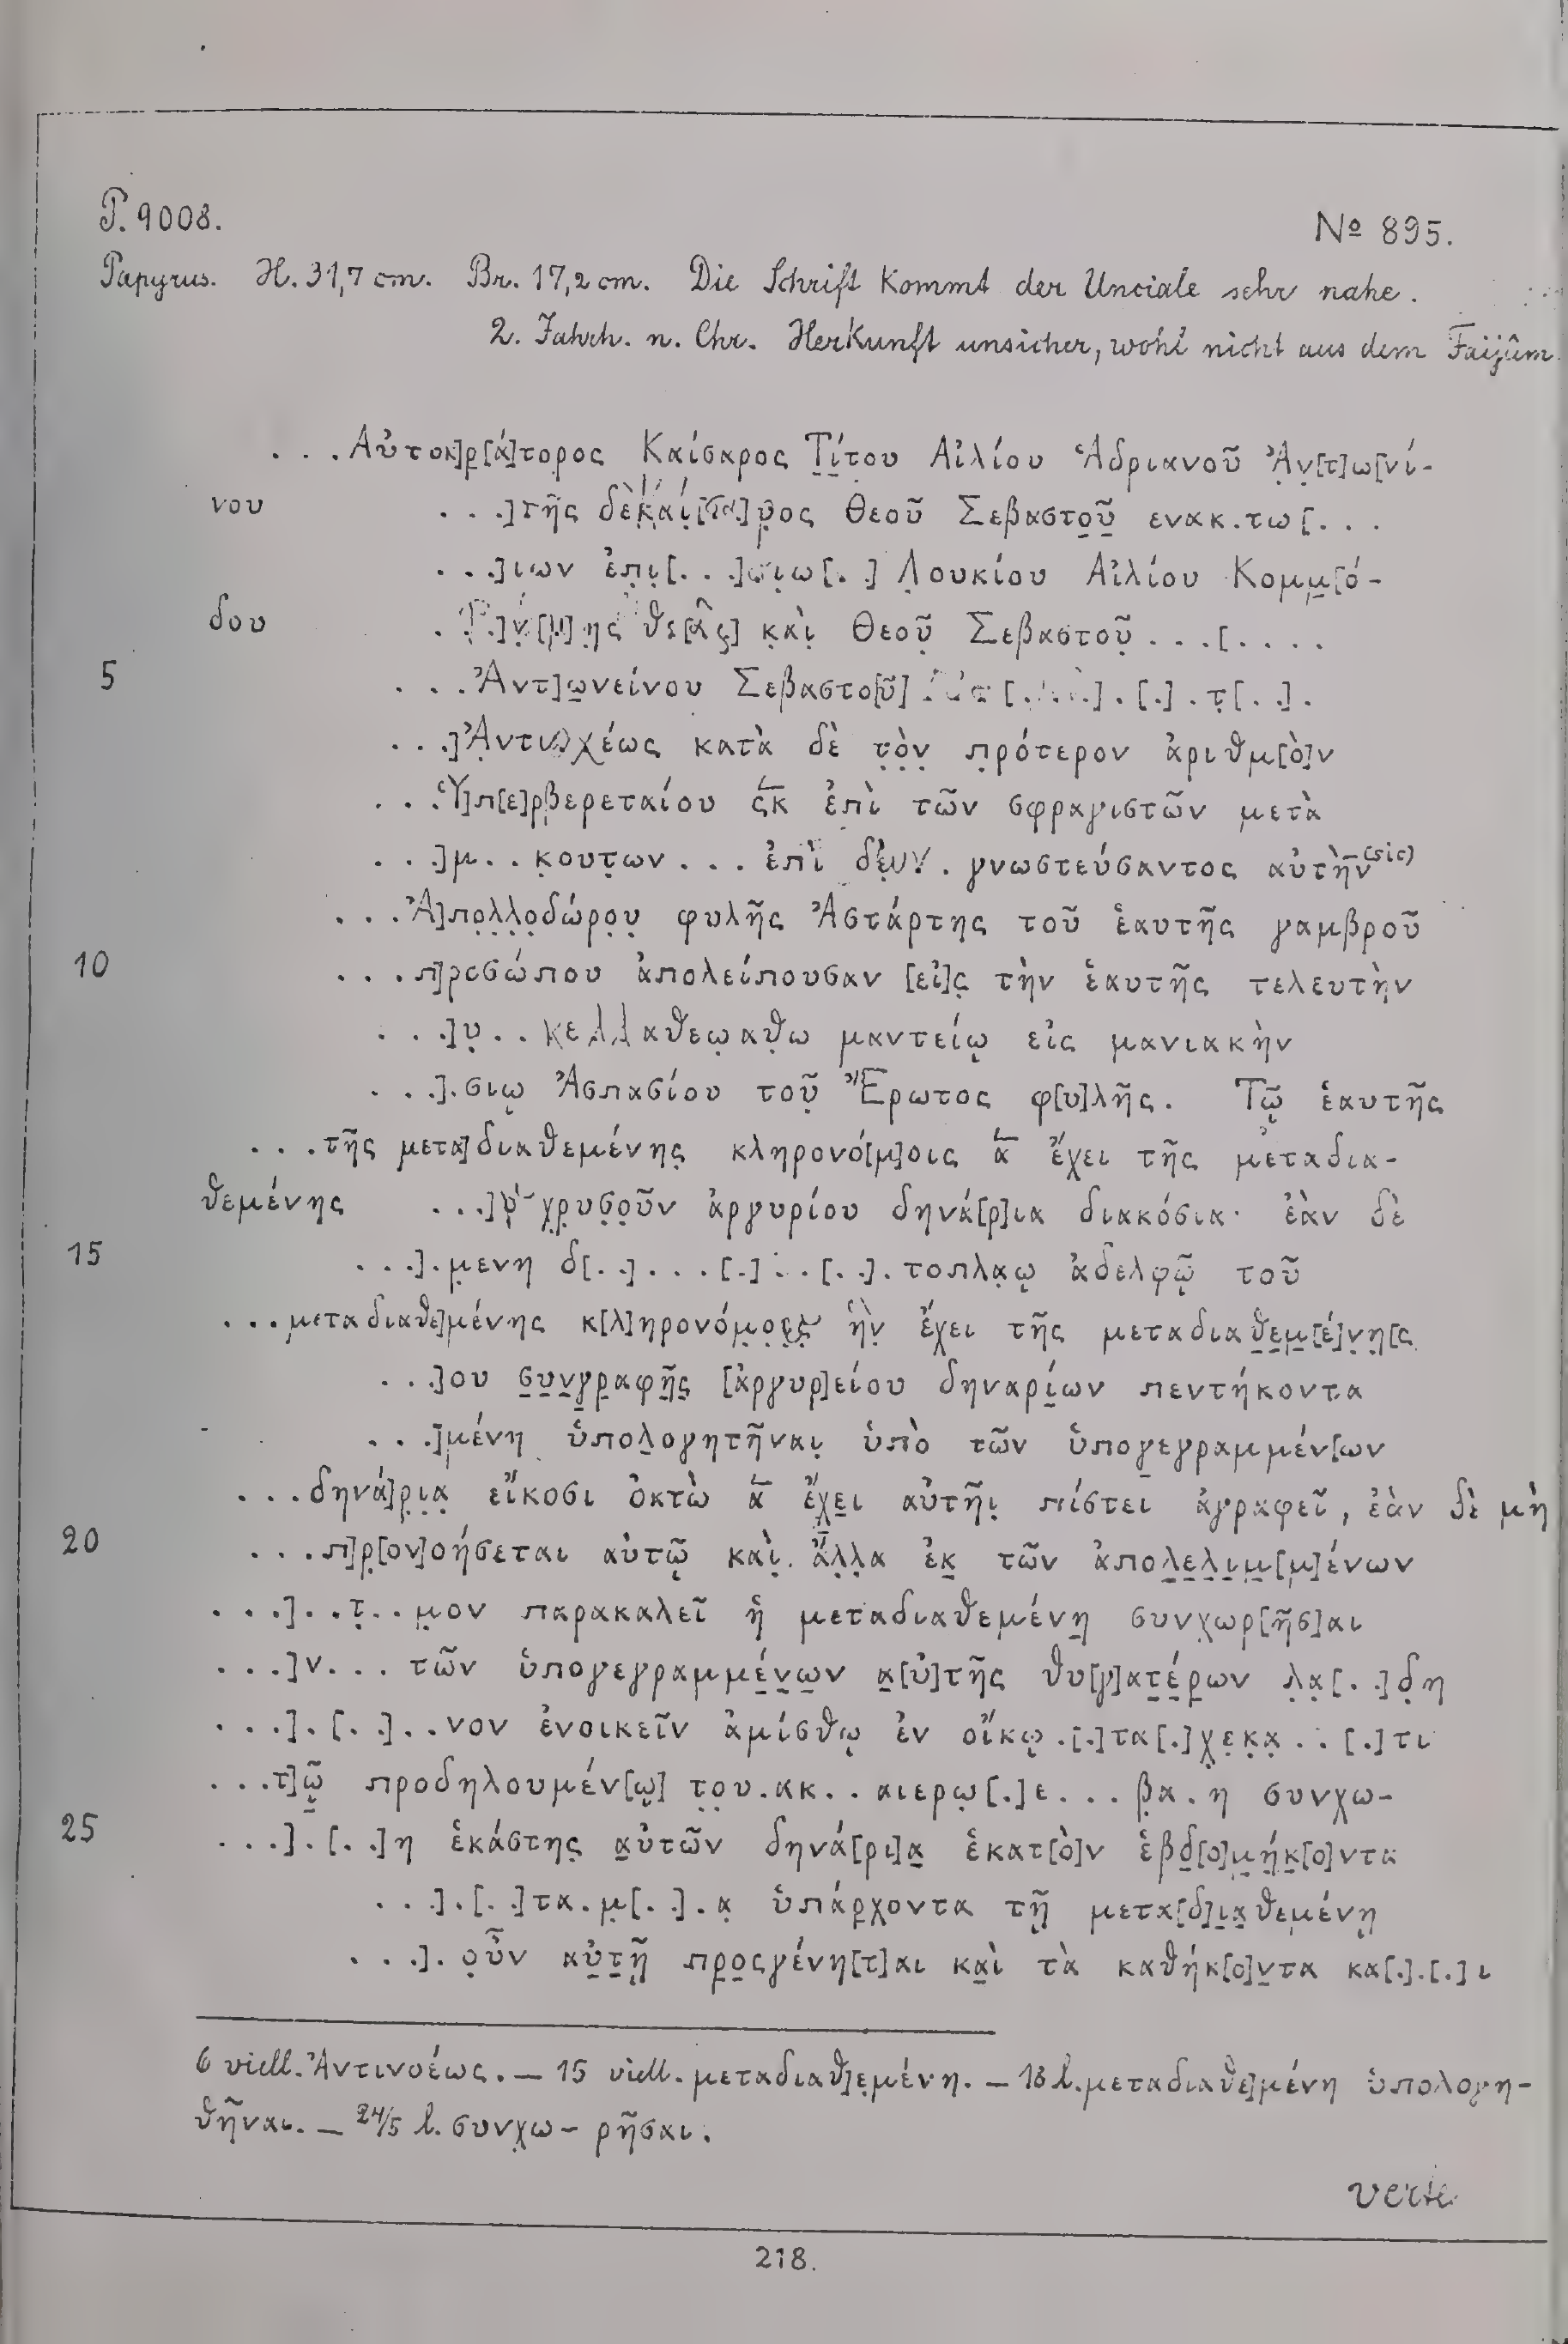 P. 9008. № 895.
Papyrus. H. 31,7 cm. Br. 17,2 cm. Die Schrift kommt der Unciale sehr nahe.
2. Jahrh. n. Chr. Herkunft unsicher, wohl nicht aus dem Faijûm
. . . Αὐτοκ]ρ̣[ά]τορος Καίσαρος Τ̣ί̣του Αἰλίου Ἁδριανοῦ Ἀ̣ν̣[τ]ω[νί-
νου . . .]τῆς δὲ κ̣α̣ί̣[σα]ρ̣ος Θεοῦ Σεβαστο̣ῦ̣ ενακ.τω[. . .
. . .]ιων ἐπ̣ι̣[. . .] Λ̣ουκίου Αἰλίου Κομμ̣[ό-
δου θε[ᾶς] κ̣α̣ὶ̣ Θεοῦ̣ Σεβαστοῦ̣ . . . [. . . .
5 . . . Ἀντ]ω̣νείνου Σεβαστο[ῦ] . [.] . τ̣[. .] .
. . .]Ἀ̣ντιοχέως κατὰ δὲ τ̣ὸ̣ν̣ π̣ρότερον ἀριθμ[ὸ]ν
. . . Ὑ]π[ε]ρβερεταίου ϛκ ἐπὶ τῶν σφραγιστῶν μετὰ
. . .]μ . . κ̣ουτ̣ων . . . ἐπὶ . γνωστεύσαντος αὐτὴν (sic)
. . . Ἀ]π̣ο̣λ̣λ̣ο̣δώρ̣ο̣υ̣ φυλῆς Ἀστάρτης τοῦ ἑαυτῆς γαμβροῦ
10 . . . π]ροσώπου ἀπολείπουσαν [εἰ]ς̣ τὴν ἑαυτῆς τελευτὴ̣ν
. . .]υ̣ . . κελλαθεω̣αθ̣ω μαντείῳ εἰς μανιακὴν
. . .].σιῳ Ἀσπασίου τοῦ̣ Ἔρωτος φ[υ]λῆς. Τῷ ἑαυτῆς
. . . τῆς μετα]διαθεμένης̣ κληρονό[μ]οις ἃ ἔχει τῆς μεταδια-
θεμένης . . .] χ̣ρ̣υσ̣ο̣ῦν ἀργυρίου δηνά[ρ]ια διακόσια· ἐὰν δὲ
15 . . .].μ̣ενη δ[. .] . . . [.] . . [. .] . τοπλα̣ῳ ἀδελφῷ τοῦ
. . . μεταδιαθε]μένης κ[λ]ηρονόμ̣ο̣ις̣ ἣν̣ ἔχει τῆς μεταδιαθ̣ε̣μ̣[έ]ν̣η̣[ς
. . .]ου σ̣υ̣ν̣γρ̣αφῆ̣ς̣ [ἀργυρ]είου δηναρί̣ων πεντήκοντα
. . .]μένη ὑπολ̣ογητῆναι̣ ὑπὸ τῶν ὑπογ̣εγραμμέν[ων
. . . δηνά]ρ̣ι̣α̣ εἴκοσι ὀκτὼ ἃ ἔχ̣ε̣ι αὐτῆι̣ πίστει ἀγραφεῖ, ἐὰν δὲ μὴ
20 . . . π]ρ̣[ον]οήσεται αὐτῷ καὶ̣ ἄ̣λ̣λ̣α ἐκ̣ τῶν ἀπολ̣ε̣λ̣ι̣μ̣[μ]ένων
. . .] . . τ̣ . . μ̣ον παρακαλεῖ ἡ μεταδιαθεμένη̣ συνχωρ[ῆσ]αι
. . .]ν . . . τῶν ὑπογεγραμμέ̣ν̣ω̣ν α̣[ὐ]τῆς θυ[γ]ατ̣έ̣ρ̣ων λ̣α̣[. .]δ̣η
. . .] . [. .] . . νον ἐνοικεῖν ἀμίσθῳ ἐν οἴκῳ .[.]τα[.]χ̣ε̣κ̣α̣ . . [.]τι
. . . τ]ῷ̣ προδηλουμέν[ῳ] τ̣ο̣υ.ακ . . αιερω̣[.]ε . . . β̣α . η συνχω-
25 . . .] . [. .]η ἑκάστης̣ α̣ὐτῶν δηνά[ρι]α̣ ἑκατ[ὸ]ν ἑβδ̣[ο]μ̣ή̣κ̣[ο]ντα
. . .] . [. .]τα.μ̣[. .] . α̣ ὑπάρ̣χοντα τῇ μετα[δ]ι̣α̣θεμένῃ
. . .] . ο̣ὖν αὐ̣τ̣ῇ πρ̣ο̣ςγένη[τ]αι κα̣ὶ τὰ καθήκ[ο]ν̣τα κα[.].[.]ι
6 viell. Ἀντινοέως. — 15 viell. μεταδιαθ]ε̣μένη. — 18 l. μεταδιαθε]μένη ὑπολογη-
θῆναι. — 24/5 l. συνχω- ρῆσαι.
verte
218.